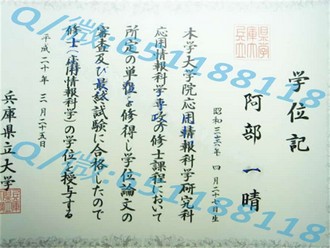 学位記
阿部一晴
昭和三十六年四月二十七日生
本学大学院応用情報科学研究科
応用情報科学専攻の修士課程において
所定の単位を修得し学位論文の
審査及び最終試験に合格したので
修士(応用情報科学)の学位を授与する
平成二十年三月二十五日
兵庫県立大学
Q/微:651188118
Q/微:651188118